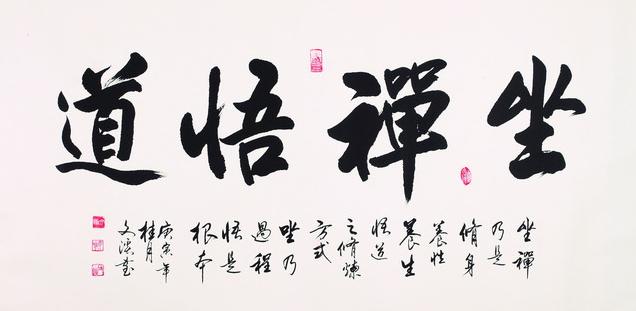 坐禪悟道
坐禪
乃是
脩身
養性
養生
悟道
之脩煉
方式
坐乃
過程
悟是
根本
庚寅年
桂月
文